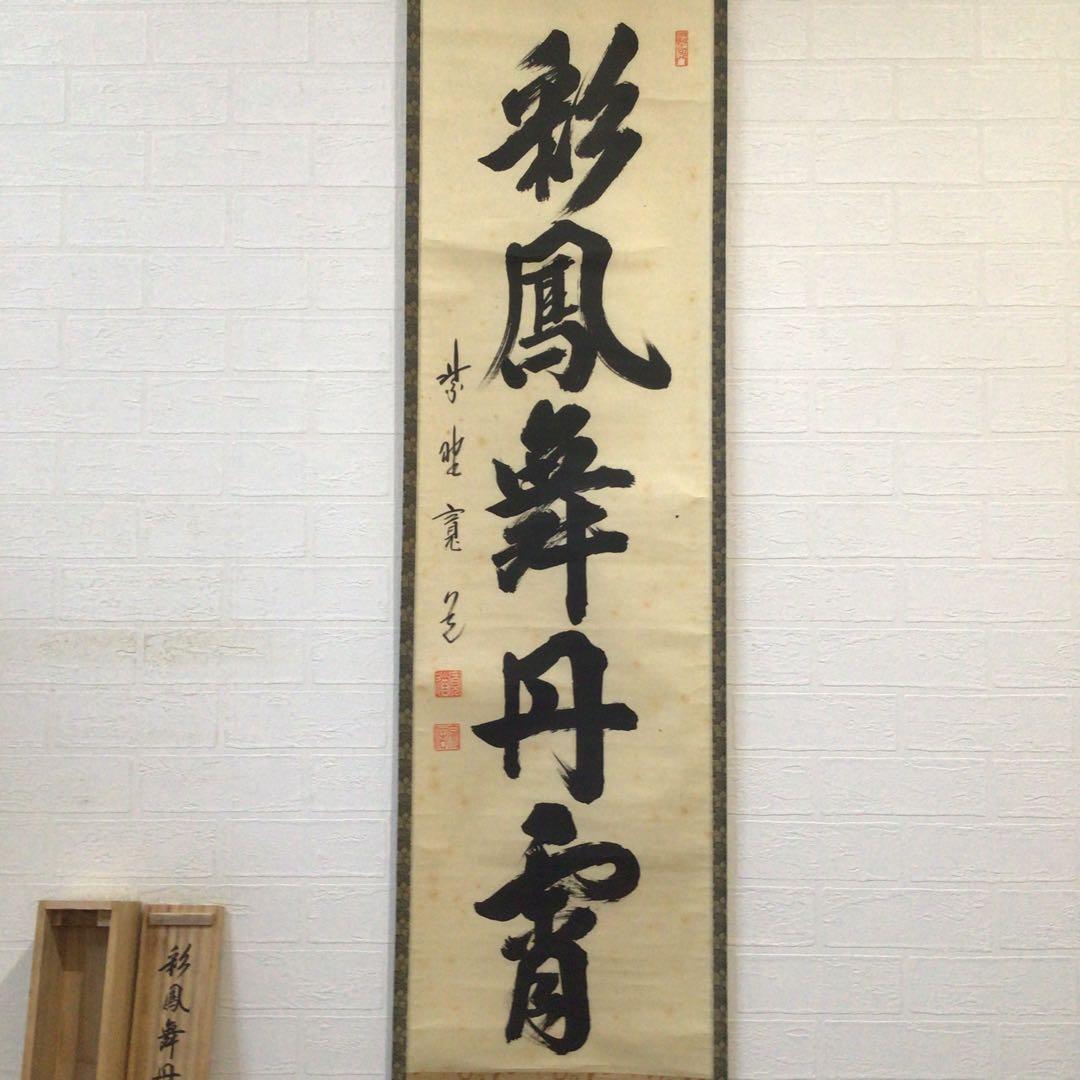 彩鳳舞丹霄
紫野寛道
彩鳳舞丹